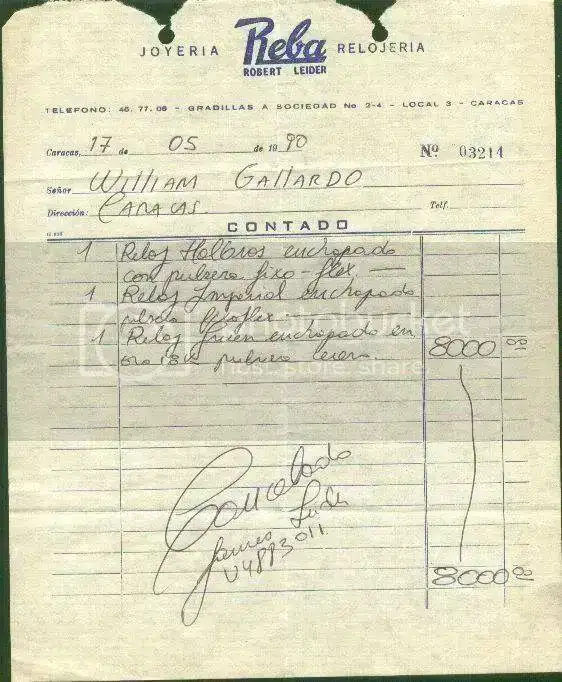 JOYERIA Reba RELOJERIA
ROBERT LEIDER
TELEFONO: 45.77.06 - GRADILLAS A SOCIEDAD No 2-4 - LOCAL 3 - CARACAS
Caracas, 17 de 05 de 1990 Nº 03214
Señor WILLIAM GALLARDO
Dirección: CARACAS. Telf.
CONTADO
1 Reloj Halbros enchapado
con pulsera fixo-flex —
1 Reloj Imperial enchapado
fixoflex.
1 Reloj enchapado en 8000 00
oro 18k pulsera cuero.
Cancelado
James Leider
V4883011
8000 00
photobucket
host. store. share